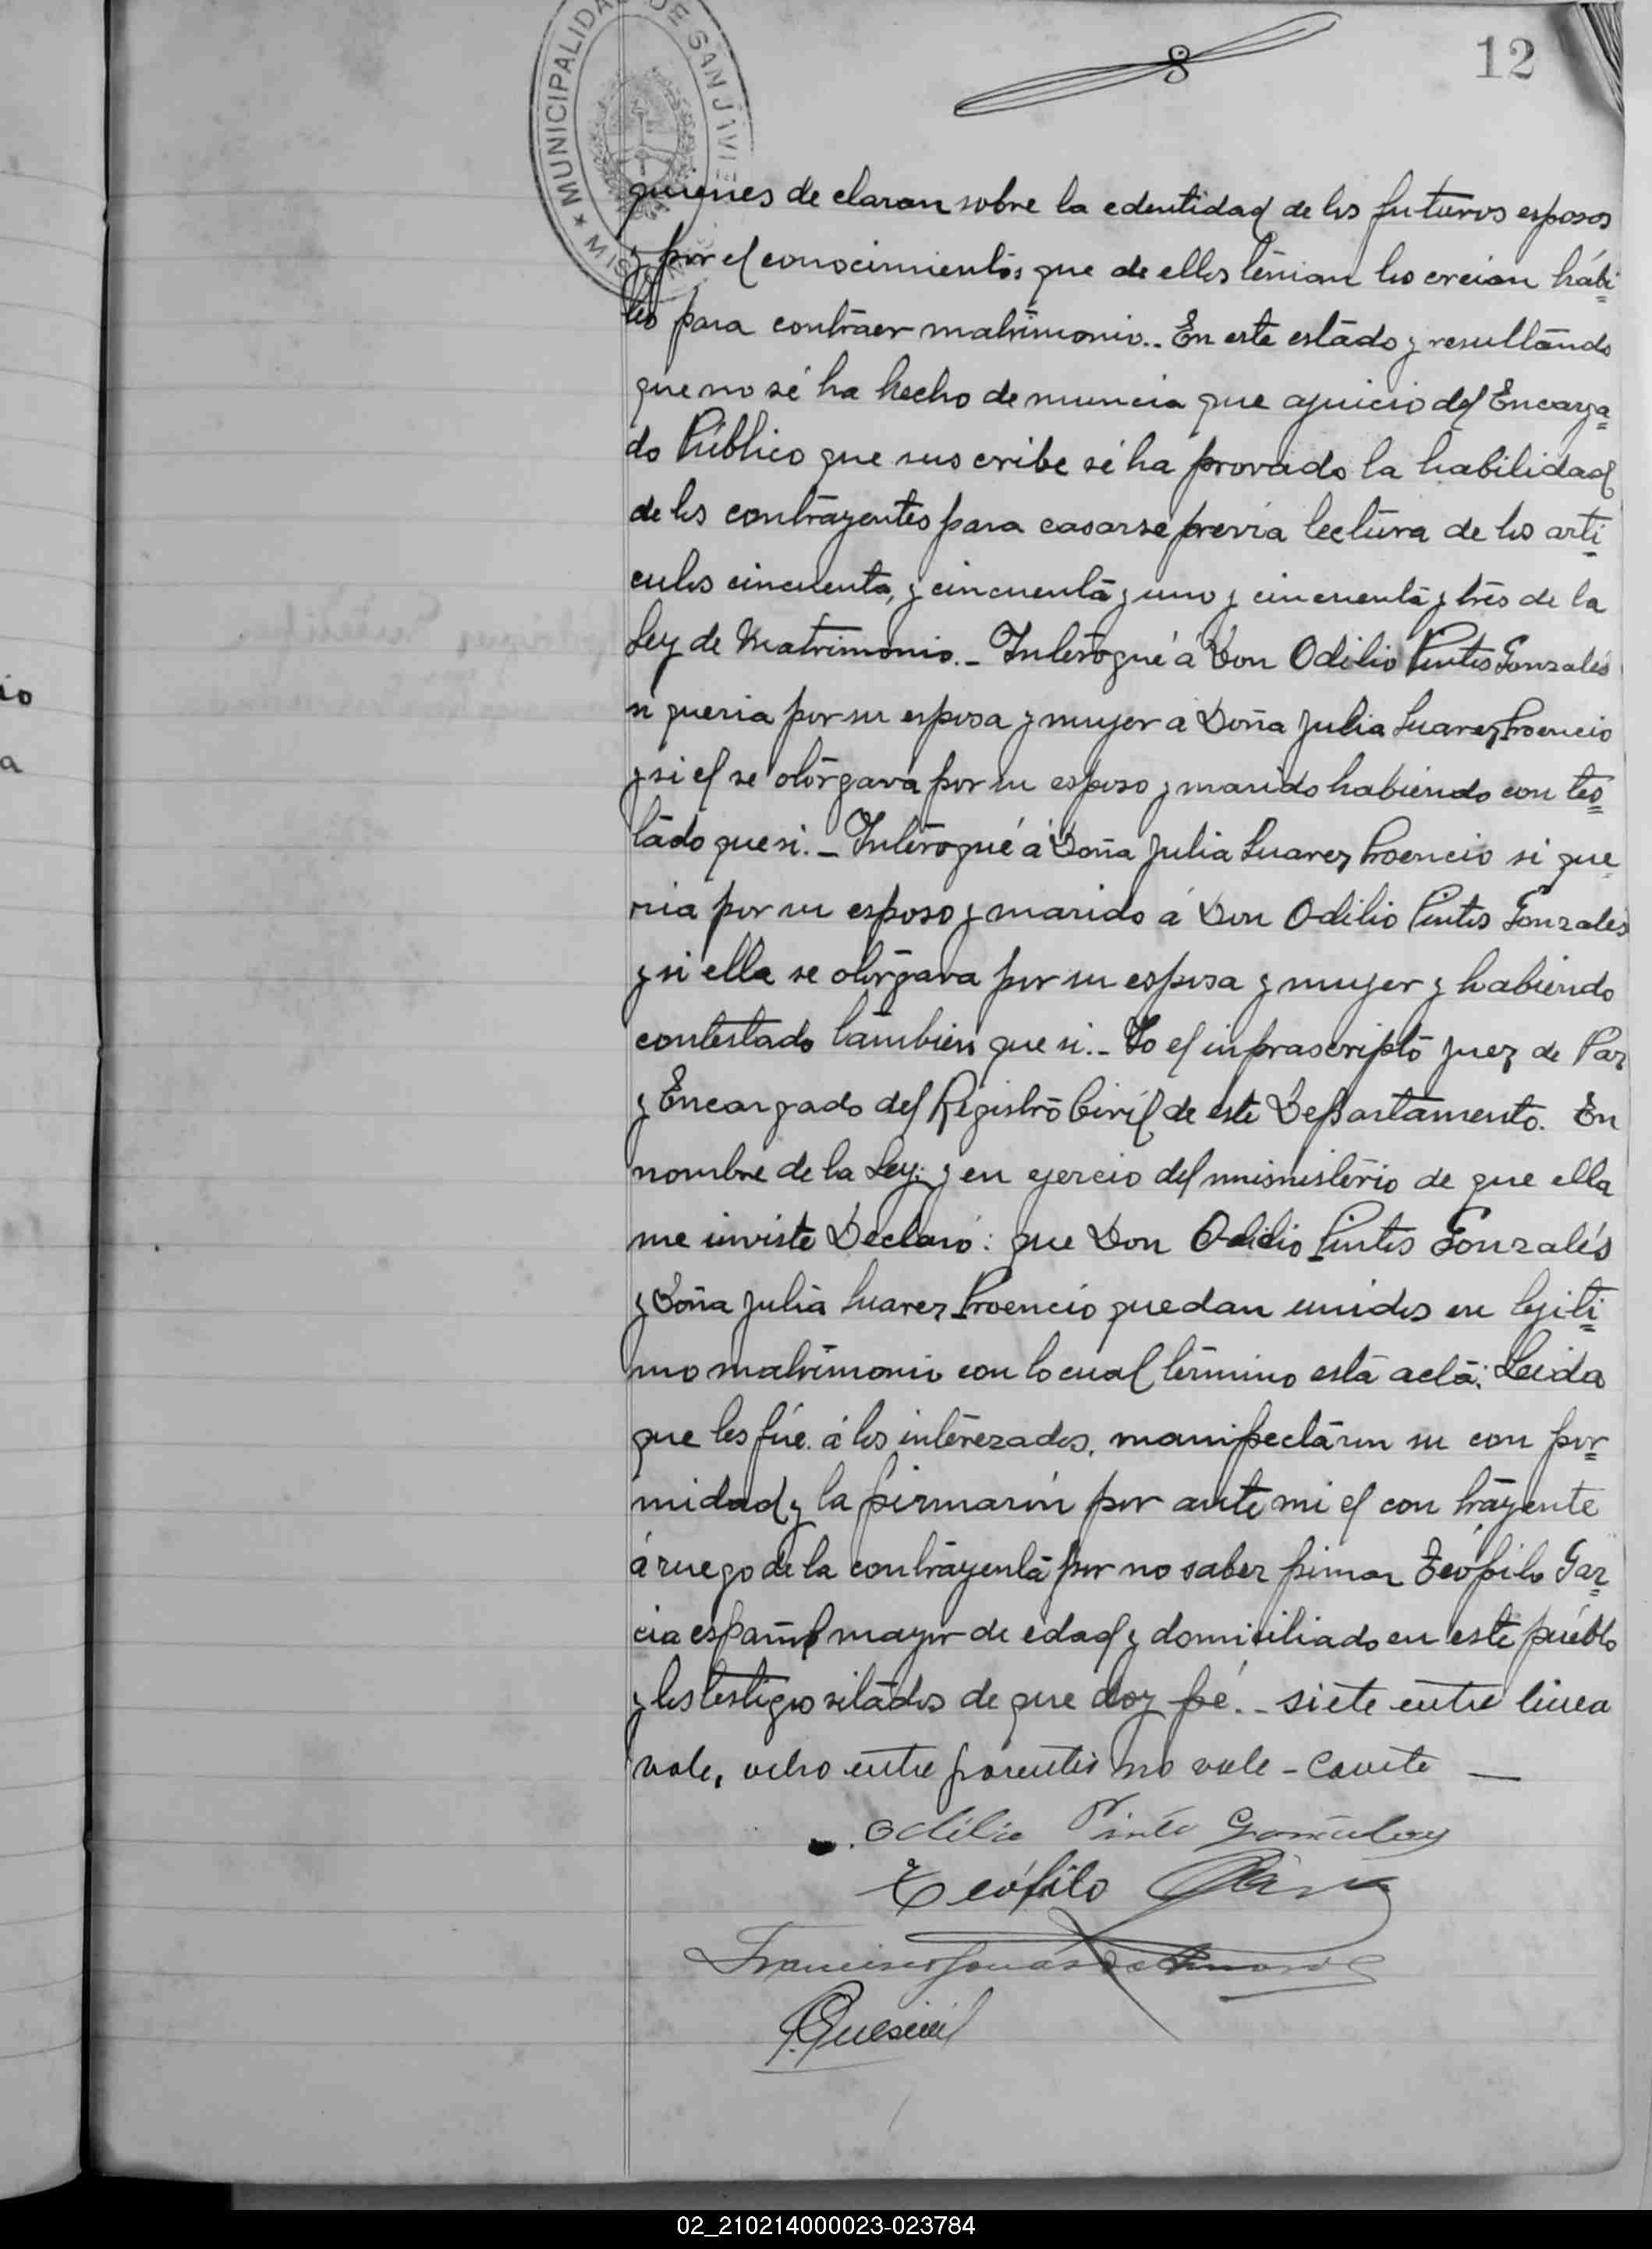 MUNICIPALIDAD DE SAN JAVIE
★ MIS
8
12
quienes de claran sobre la edentidad de los futuros esposos
y por el conocimientos que de ellos tenian los creian hábi=
les para contraer matrimonio.. En este estado y resultando
que no sé ha hecho denuncia que ajuicio del Encarga=
do Público que suscribe sé ha provado la habilidad
de los contrayentes para casarse previa lectura de los arti=
culos cincuenta, y cincuenta y uno y cincuenta y tres de la
Ley de Matrimonio.- Interogué á Don Odilio Pintos Gonzalés
si queria por su esposa y muyer á Doña Julia Suarez Proencio
y si el se otorgava por su esposo y marido habiendo con tes=
tado que si.- Interogué á Doña Julia Suarez Proencio si que
ria por su esposo y marido á Don Odilio Pintos Gonzalés
y si ella se otorgava por su esposa y muyer y habiendo
contestado tambien que si.- Yo el infrascripto Juez de Paz
y Encargado del Registro Civil de este Departamento. En
nombre de la Ley: y en ejercio del minsisterio de que ella
me inviste Declaró: que Don Odilio Pintos Gonzalés
y Doña Julia Suarez Proencio quedan unidos en legiti=
mo matrimonio con lo cual término está acta: Leida
que les fúe á los interezados, manifectáron su con for=
midad y la firmarón por ante mi el con trayente
á ruego de la contrayenta por no saber firmar Teófilo Gar=
cia español mayor de edad y domiciliado en este puéblo
y los testigos sitados de que doy fé.- siete entre linea
vale, ocho entre parentis no vale - Conste —
Odilio Pinto Gonzalez
Teófilo García
Francisco
02_210214000023-023784